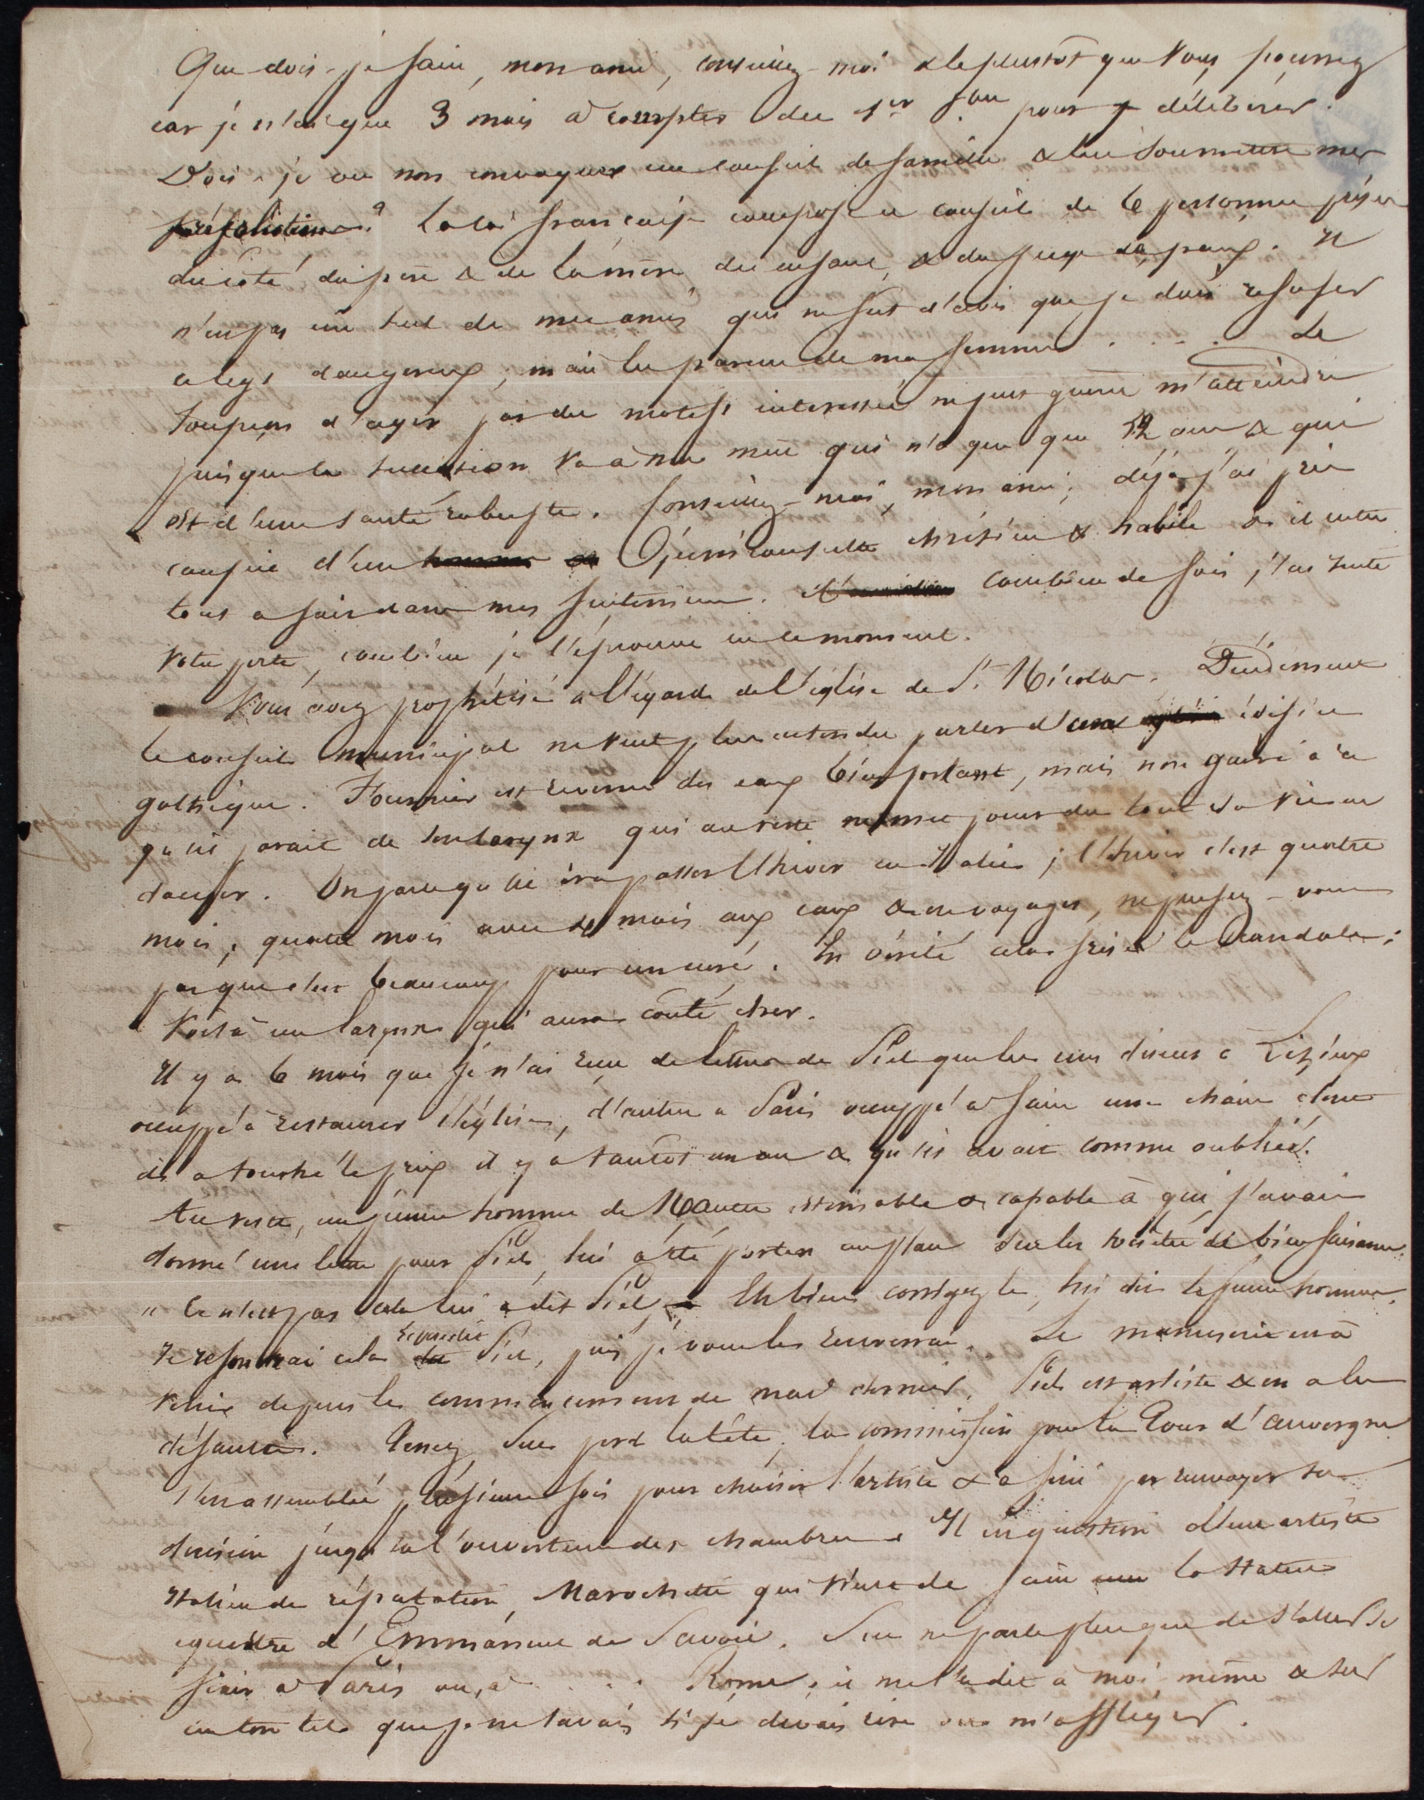 Que dois-je faire, mon ami, conseillez-moi & le plustôt que vous pourrez
car je n'ai que 3 mois à compter du 1er Jan pour y délibérer.
Dois-je ou non convoquer un conseil de famille & lui soumettre mes
? La loi française compose ce conseil de 6 personnes prises
du côté du père & de la mère des enfans, & du juge de paix. Il
n'est pas un seul de mes amis qui ne soit d'avis que je dois refuser
ce legs dangereux; mais les parens de ma femme . . . . Le
soupçon d'agir par des motifs interessés ne peut guère m'atteindre
puisque la succession va à ma mère qui n'a que que 52 ans & qui
est d'une santé robuste. Conseillez-moi, mon ami; déjà j'ai pris
conseil d'un homme & Jurisconsulte chrétien & habile & il entre
tout a fait dans mes sentimens. combien de fois j'ai senti
votre perte, combien je l'éprouve en ce moment.
Vous avez prophétisé à l'égard de l'église de St Nicolas. Décidément
le conseil municipal ne veut plus entendre parler d'un édifice
gothique. Fournier est revenu des eaux bien portant, mais non guéri à ce
qu'il parait de son larynx qui au reste ne met pour du tout sa vie en
danger. On parle qu'il ira passer l'hiver en Italie; l'hiver c'est quatre
mois; quatre mois avec 4 mois aux eaux & en voyages, ne pensez-vous
pas que c'est beaucoup pour un curé. En vérité cela frise le scandale;
Voilà un larynx qui aura coûté cher.
Il y a 6 mois que je n'ai reçu de lettre de Piel que les uns disent à Lizieux
occuppé à restaurer l'église, d'autres a Paris occuppé a faire une chaire dont
il a touché le prix il y a tantôt un an & qu'il avait comme oubliée.
Au reste, un jeune homme de Nantes estimable & capable à qui j'avais
donné une lettre pour Piel, lui a été porter un plan sur les sociétés de bienfaisance.
" Ce n'est pas cela lui a dit Piel, Eh bien corrigez le, lui dit le jeune homme.
Je refondrai cela repartit Piel, puis je vous les renverrai. Le manuscrit est à
venir depuis le commencement de mai dernier. Piel est artiste & en a les
défauts. Tenez, Suc perd la tête. la commission pour la Tour d'Auvergne
s'est assemblée plusieurs fois pour choisir l'artiste & a fini par renvoyer sa
décision jusqu'à l'ouverture des chambres. Il est question d'un artiste
italien de réputation, Marochetti qui vient de faire la statue
equestre d'Emmanuel de Savoie. Suc ne parle plus que de s'aller
fixer à Paris ou, à . . . . Rome; il me l'a dit à moi même & sur
un ton tel que je ne savais si je devais rire ou m'affliger.